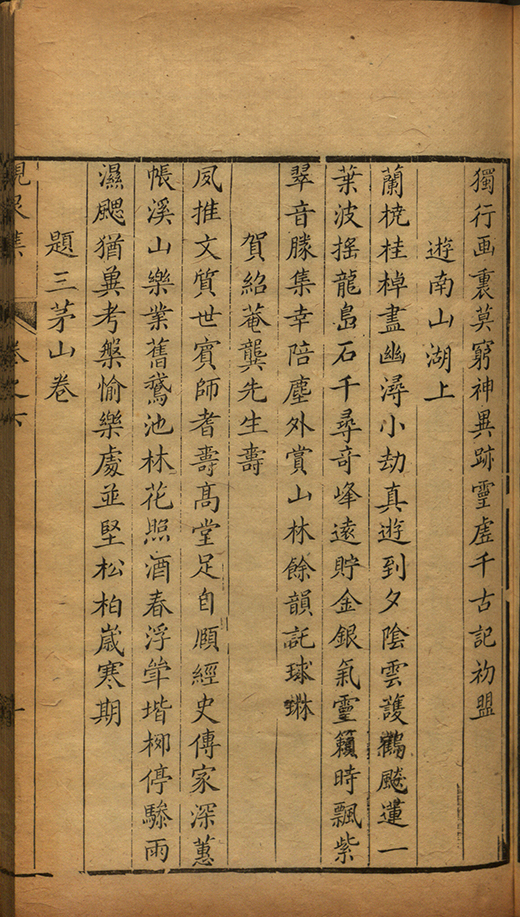 獨行画裏莫窮神異跡靈虛千古記初盟
遊南山湖上
蘭橈桂棹盡幽潯小劫真遊到夕陰雲護鶴飈蓮一
葉波搖龍島石千尋奇峰遠貯金銀氣靈籟時飄紫
翠音勝集幸陪塵外賞山林餘韻託球琳
賀紹菴龔先生壽
夙推文質世賓師耆壽高堂足自頤經史傳家深蕙
帳溪山樂業舊鵞池林花照酒春浮斝堦栁停驂雨
濕颸猶兾考槃愉樂處並堅松柏歲寒期
題三茅山卷
集 卷之六